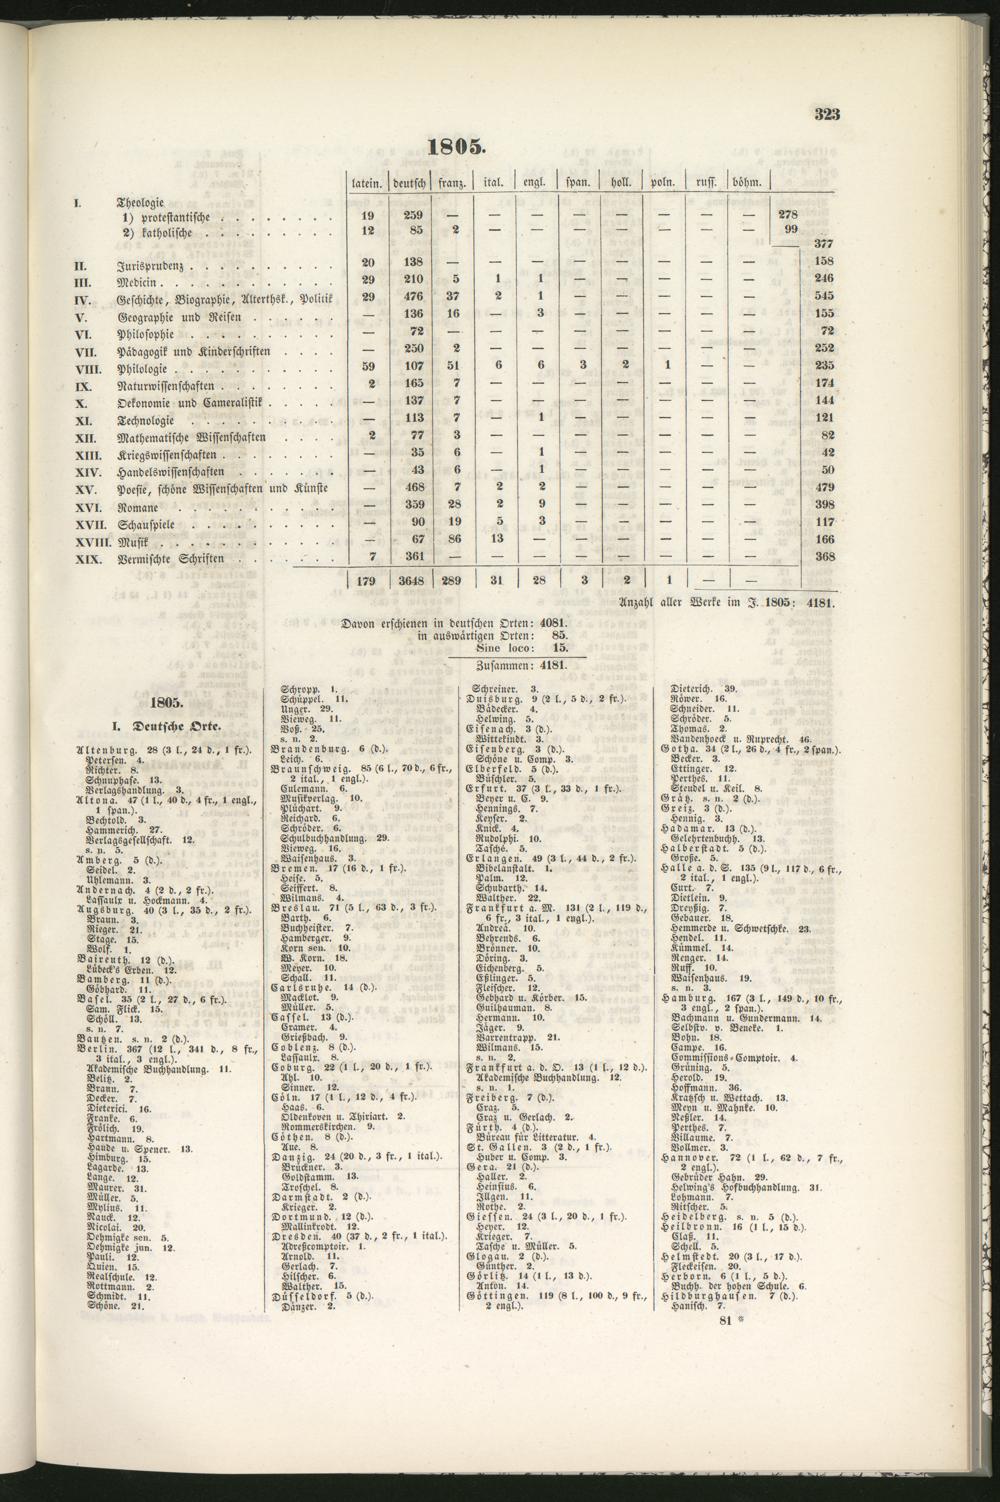 323
1805.
latein. deutsch franz. ital. engl. span. holl. poln. russ. böhm.
I. Theologie
1) protestantische . . . . . . . . 19 259 — — — — — — — — 278
2) katholische . . . . . . . . . 12 85 2 — — — — — — — 99
377
II. Jurisprudenz . . . . . . . . . . 20 138 — — — — — — — — 158
III. Medicin . . . . . . . . . . . . 29 210 5 1 1 — — — — — 246
IV. Geschichte, Biographie, Alterthsk., Politik 29 476 37 2 1 — — — — — 545
V. Geographie und Reisen . . . . . . — 136 16 — 3 — — — — — 155
VI. Philosophie . . . . . . . . . . — 72 — — — — — — — — 72
VII. Pädagogik und Kinderschriften . . . . — 250 2 — — — — — — — 252
VIII. Philologie . . . . . . . . . . . 59 107 51 6 6 3 2 1 — — 235
IX. Naturwissenschaften . . . . . . . . 2 165 7 — — — — — — — 174
X. Oekonomie und Cameralistik . . . . . — 137 7 — — — — — — — 144
XI. Technologie . . . . . . . . . . — 113 7 — 1 — — — — — 121
XII. Mathematische Wissenschaften . . . . 2 77 3 — — — — — — — 82
XIII. Kriegswissenschaften . . . . . . . . — 35 6 — 1 — — — — — 42
XIV. Handelswissenschaften . . . . . . . — 43 6 — 1 — — — — — 50
XV. Poesie, schöne Wissenschaften und Künste — 468 7 2 2 — — — — — 479
XVI. Romane . . . . . . . . . . . — 359 28 2 9 — — — — — 398
XVII. Schauspiele . . . . . . . . . . — 90 19 5 3 — — — — — 117
XVIII. Musik . . . . . . . . . . . . — 67 86 13 — — — — — — 166
XIX. Vermischte Schriften . . . . . . . 7 361 — — — — — — — — 368
179 3648 289 31 28 3 2 1 — —
Anzahl aller Werke im J. 1805: 4181.
Davon erschienen in deutschen Orten: 4081.
in auswärtigen Orten: 85.
Sine loco: 15.
Zusammen: 4181.
1805.
I. Deutsche Orte.
Altenburg. 28 (3 l., 24 d., 1 fr.).
Petersen. 4.
Richter. 8.
Schnuphase. 13.
Verlagshandlung. 3.
Altona. 47 (1 l., 40 d., 4 fr., 1 engl.,
1 span.).
Bechtold. 3.
Hammerich. 27.
Verlagsgesellschaft. 12.
s. n. 5.
Amberg. 5 (d.).
Seidel. 2.
Uhlemann. 3.
Andernach. 4 (2 d., 2 fr.).
Lassaulx u. Hockmann. 4.
Augsburg. 40 (3 l., 35 d., 2 fr.).
Braun. 3.
Rieger. 21.
Stage. 15.
Wolf. 1.
Baireuth. 12 (d.).
Lübeck's Erben. 12.
Bamberg. 11 (d.).
Göbhard. 11.
Basel. 35 (2 l., 27 d., 6 fr.).
Sam. Flick. 15.
Schöll. 13.
s. n. 7.
Bautzen. s. n. 2 (d.).
Berlin. 367 (12 l., 341 d., 8 fr.,
3 ital., 3 engl.).
Akademische Buchhandlung. 11.
Belitz. 2.
Braun. 7.
Decker. 7.
Dieterici. 16.
Franke. 6.
Frölich. 19.
Hartmann. 8.
Haude u. Spener. 13.
Himburg. 15.
Lagarde. 13.
Lange. 12.
Maurer. 31.
Müller. 5.
Mylius. 11.
Nauck. 12.
Nicolai. 20.
Oehmigke sen. 5.
Oehmigke jun. 12.
Pauli. 12.
Quien. 15.
Realschule. 12.
Rottmann. 2.
Schmidt. 11.
Schöne. 21.
Schropp. 1.
Schüppel. 11.
Unger. 29.
Vieweg. 11.
Voß. 25.
s. n. 2.
Brandenburg. 6 (d.).
Leich. 6.
Braunschweig. 85 (6 l., 70 d., 6 fr.,
2 ital., 1 engl.).
Culemann. 6.
Musikverlag. 10.
Plüchart. 9.
Reichard. 6.
Schröder. 6.
Schulbuchhandlung. 29.
Vieweg. 16.
Waisenhaus. 3.
Bremen. 17 (16 d., 1 fr.).
Heise. 5.
Seiffert. 8.
Wilmans. 4.
Breslau. 71 (5 l., 63 d., 3 fr.).
Barth. 6.
Buchheister. 7.
Hamberger. 9.
Korn sen. 10.
W. Korn. 18.
Meyer. 10.
Schall. 11.
Carlsruhe. 14 (d.).
Macklot. 9.
Müller. 5.
Cassel. 13 (d.).
Cramer. 4.
Grießbach. 9.
Coblenz. 8 (d.).
Lassaulx. 8.
Coburg. 22 (1 l., 20 d., 1 fr.).
Ahl. 10.
Sinner. 12.
Cöln. 17 (1 l., 12 d., 4 fr.).
Haas. 6.
Oldenkoven u. Thiriart. 2.
Rommerskirchen. 9.
Cöthen. 8 (d.).
Aue. 8.
Danzig. 24 (20 d., 3 fr., 1 ital.).
Brückner. 3.
Goldstamm. 13.
Troschel. 8.
Darmstadt. 2 (d.).
Krieger. 2.
Dortmund. 12 (d.).
Mallinkrodt. 12.
Dresden. 40 (37 d., 2 fr., 1 ital.).
Adreßcomptoir. 1.
Arnold. 11.
Gerlach. 7.
Hilscher. 6.
Walther. 15.
Düsseldorf. 5 (d.).
Dänzer. 2.
Schreiner. 3.
Duisburg. 9 (2 l., 5 d., 2 fr.).
Bädecker. 4.
Helwing. 5.
Eisenach. 3 (d.).
Wittekindt. 3.
Eisenberg. 3 (d.).
Schöne u. Comp. 3.
Elberfeld. 5 (d.).
Büschler. 5.
Erfurt. 37 (3 l., 33 d., 1 fr.).
Beyer u. C. 9.
Hennings. 7.
Keyser. 2.
Knick. 4.
Rudolphi. 10.
Taschs. 5.
Erlangen. 49 (3 l., 44 d., 2 fr.).
Bibelanstalt. 1.
Palm. 12.
Schubarth. 14.
Walther. 22.
Frankfurt a. M. 131 (2 l., 119 d.,
6 fr., 3 ital., 1 engl.).
Andreä. 10.
Behrends. 6.
Brönner. 10.
Döring. 3.
Eichenberg. 5.
Eßlinger. 5.
Fleischer. 12.
Gebhard u. Körber. 15.
Guilhauman. 8.
Hermann. 10.
Jäger. 9.
Varrentrapp. 21.
Wilmans. 15.
s. n. 2.
Frankfurt a. d. O. 13 (1 l., 12 d.).
Akademische Buchhandlung. 12.
s. n. 1.
Freiberg. 7 (d.).
Craz. 5.
Craz u. Gerlach. 2.
Fürth. 4 (d.).
Büreau für Litteratur. 4.
St. Gallen. 3 (2 d., 1 fr.).
Huber u. Comp. 3.
Gera. 21 (d.).
Haller. 2.
Heinsius. 6.
Illgen. 11.
Rothe. 2.
Giessen. 24 (3 l., 20 d., 1 fr.).
Heyer. 12.
Krieger. 7.
Tasche u. Müller. 5.
Glogau. 2 (d.).
Günther. 2.
Görlitz. 14 (1 l., 13 d.).
Anton. 14.
Göttingen. 119 (8 l., 100 d., 9 fr.,
2 engl.).
Dieterich. 39.
Röwer. 16.
Schneider. 11.
Schröder. 5.
Thomas. 2.
Vandenhoeck u. Ruprecht. 46.
Gotha. 34 (2 l., 26 d., 4 fr., 2 span.).
Becker. 3.
Ettinger. 12.
Perthes. 11.
Steudel u. Keil. 8.
Grätz. s. n. 2 (d.).
Greiz. 3 (d.).
Hennig. 3.
Hadamar. 13 (d.).
Gelehrtenbuchh. 13.
Halberstadt. 5 (d.).
Große. 5.
Halle a. d. S. 135 (9 l., 117 d., 6 fr.,
2 ital., 1 engl.).
Curt. 7.
Dietlein. 9.
Dreyßig. 7.
Gebauer. 18.
Hemmerde u. Schwetschke. 23.
Hendel. 11.
Kümmel. 14.
Renger. 14.
Ruff. 10.
Waisenhaus. 19.
s. n. 3.
Hamburg. 167 (3 l., 149 d., 10 fr.,
3 engl., 2 span.).
Bachmann u. Gundermann. 14.
Selbstv. v. Beneke. 1.
Bohn. 18.
Campe. 16.
Commissions-Comptoir. 4.
Grüning. 5.
Herold. 19.
Hoffmann. 36.
Kratzsch u. Wettach. 13.
Meyn u. Mahnke. 10.
Neßler. 14.
Perthes. 7.
Villaume. 7.
Vollmer. 3.
Hannover. 72 (1 l., 62 d., 7 fr.,
2 engl.).
Gebrüder Hahn. 29.
Helwing's Hofbuchhandlung. 31.
Lohmann. 7.
Ritscher. 5.
Heidelberg. s. n. 5 (d.).
Heilbronn. 16 (1 l., 15 d.).
Claß. 11.
Schell. 5.
Helmstedt. 20 (3 l., 17 d.).
Fleckeisen. 20.
Herborn. 6 (1 l., 5 d.).
Buchh. der hohen Schule. 6.
Hildburghausen. 7 (d.).
Hanisch. 7.
81 *